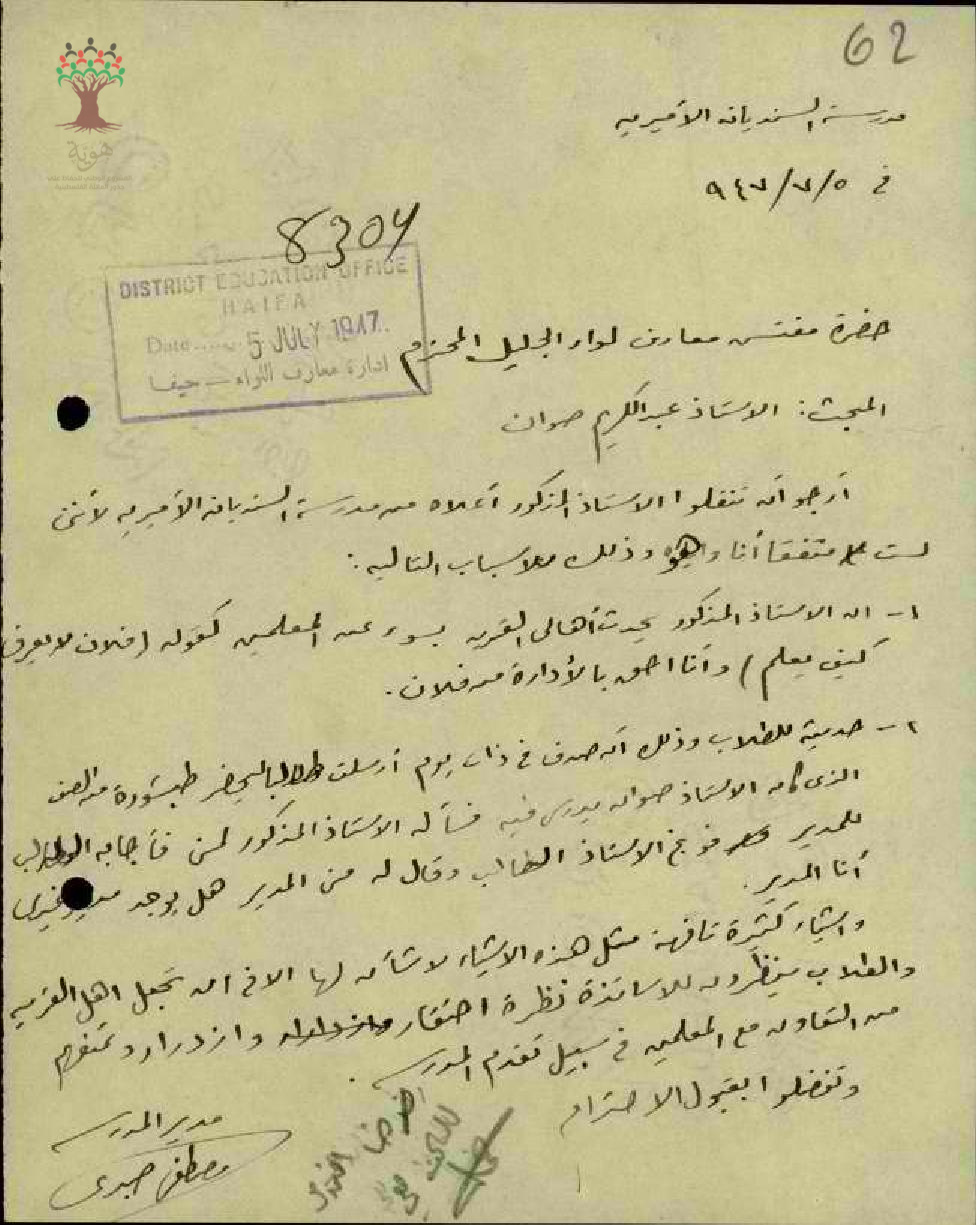 62
هوية
مدرسة السنديانه الأميريه
في ٥/٧/٩٤٧
8304
DISTRICT EDUCATION OFFICE
HAIFA
Date ...... 5 JULY 1947
ادارة معارف اللواء — حيفا
حضرة مفتش معارف لواء الجليل المحترم
المبحث: الاستاذ عبد الكريم صوان
أرجو أن تنقلوا الاستاذ المذكور أعلاه من مدرسة السنديانه الأميريه لأنني
لست متفقا أنا وهو وذلك للاسباب التاليه:
١- ان الاستاذ المذكور يحدث أهالي القريه بسوء عن المعلمين كقوله (فلان لا يعرف
كيف يعلم) وأنا احق بالأدارة من فلان.
٢- حديثه للطلاب وذلك أنه صدف في ذات يوم أرسلت طالبا ليحضر طبشورة من الصف
الذي كان الاستاذ صوان يدرس فيه فسأله الاستاذ المذكور لمن فأجابه الطالب
للمدير فوبخ الاستاذ الطالب وقال له من المدير هل يوجد مدير غيري
أنا المدير.
واشياء كثيرة تافهة مثل هذه الاشياء لا شأن لها الا في ان تجعل اهل القريه
والطلاب ينظرون للاساتذة نظرة احتقار وازدراء وتمنعهم
من التعاون مع المعلمين في سبيل تقدم المدرسه.
وتفضلوا بقبول الاحترام
مدير المدرسه
مصطفى صبري